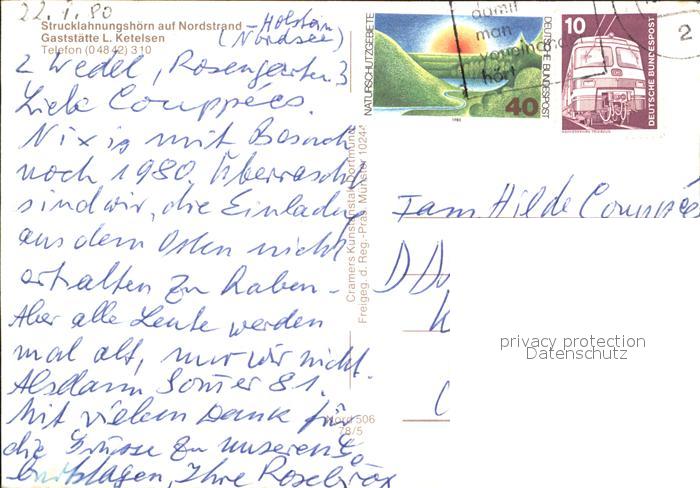 22.9.80
Strucklahnungshörn auf Nordstrand - Holstein
Gaststätte L. Ketelsen (Nordsee)
Telefon (0 48 42) 3 10
2 Wedel, Rosengarten 3
Liebe Couppées.
Nix ig mit Besuch
noch 1980. Überrascht
sind wir, die Einladung
aus dem Osten nicht
erhalten zu haben -
Aber alle Leute werden
mal alt, nur wir nicht.
Alsdann Somer 81.
Mit vielem Dank für
die Grüsse zu unseren Ge
burtstagen, Ihre
Cramers Kunstanstalt Dortmund
Freigeg. d. Reg.-Präs. Münster 1024
Nord 506
78/5
NATURSCHUTZGEBIETE
DEUTSCHE BUNDESPOST
40
1980
10
DEUTSCHE BUNDESPOST
damit
man
hört
2
Fam Hilde Couppées
D
privacy protection
Datenschutz